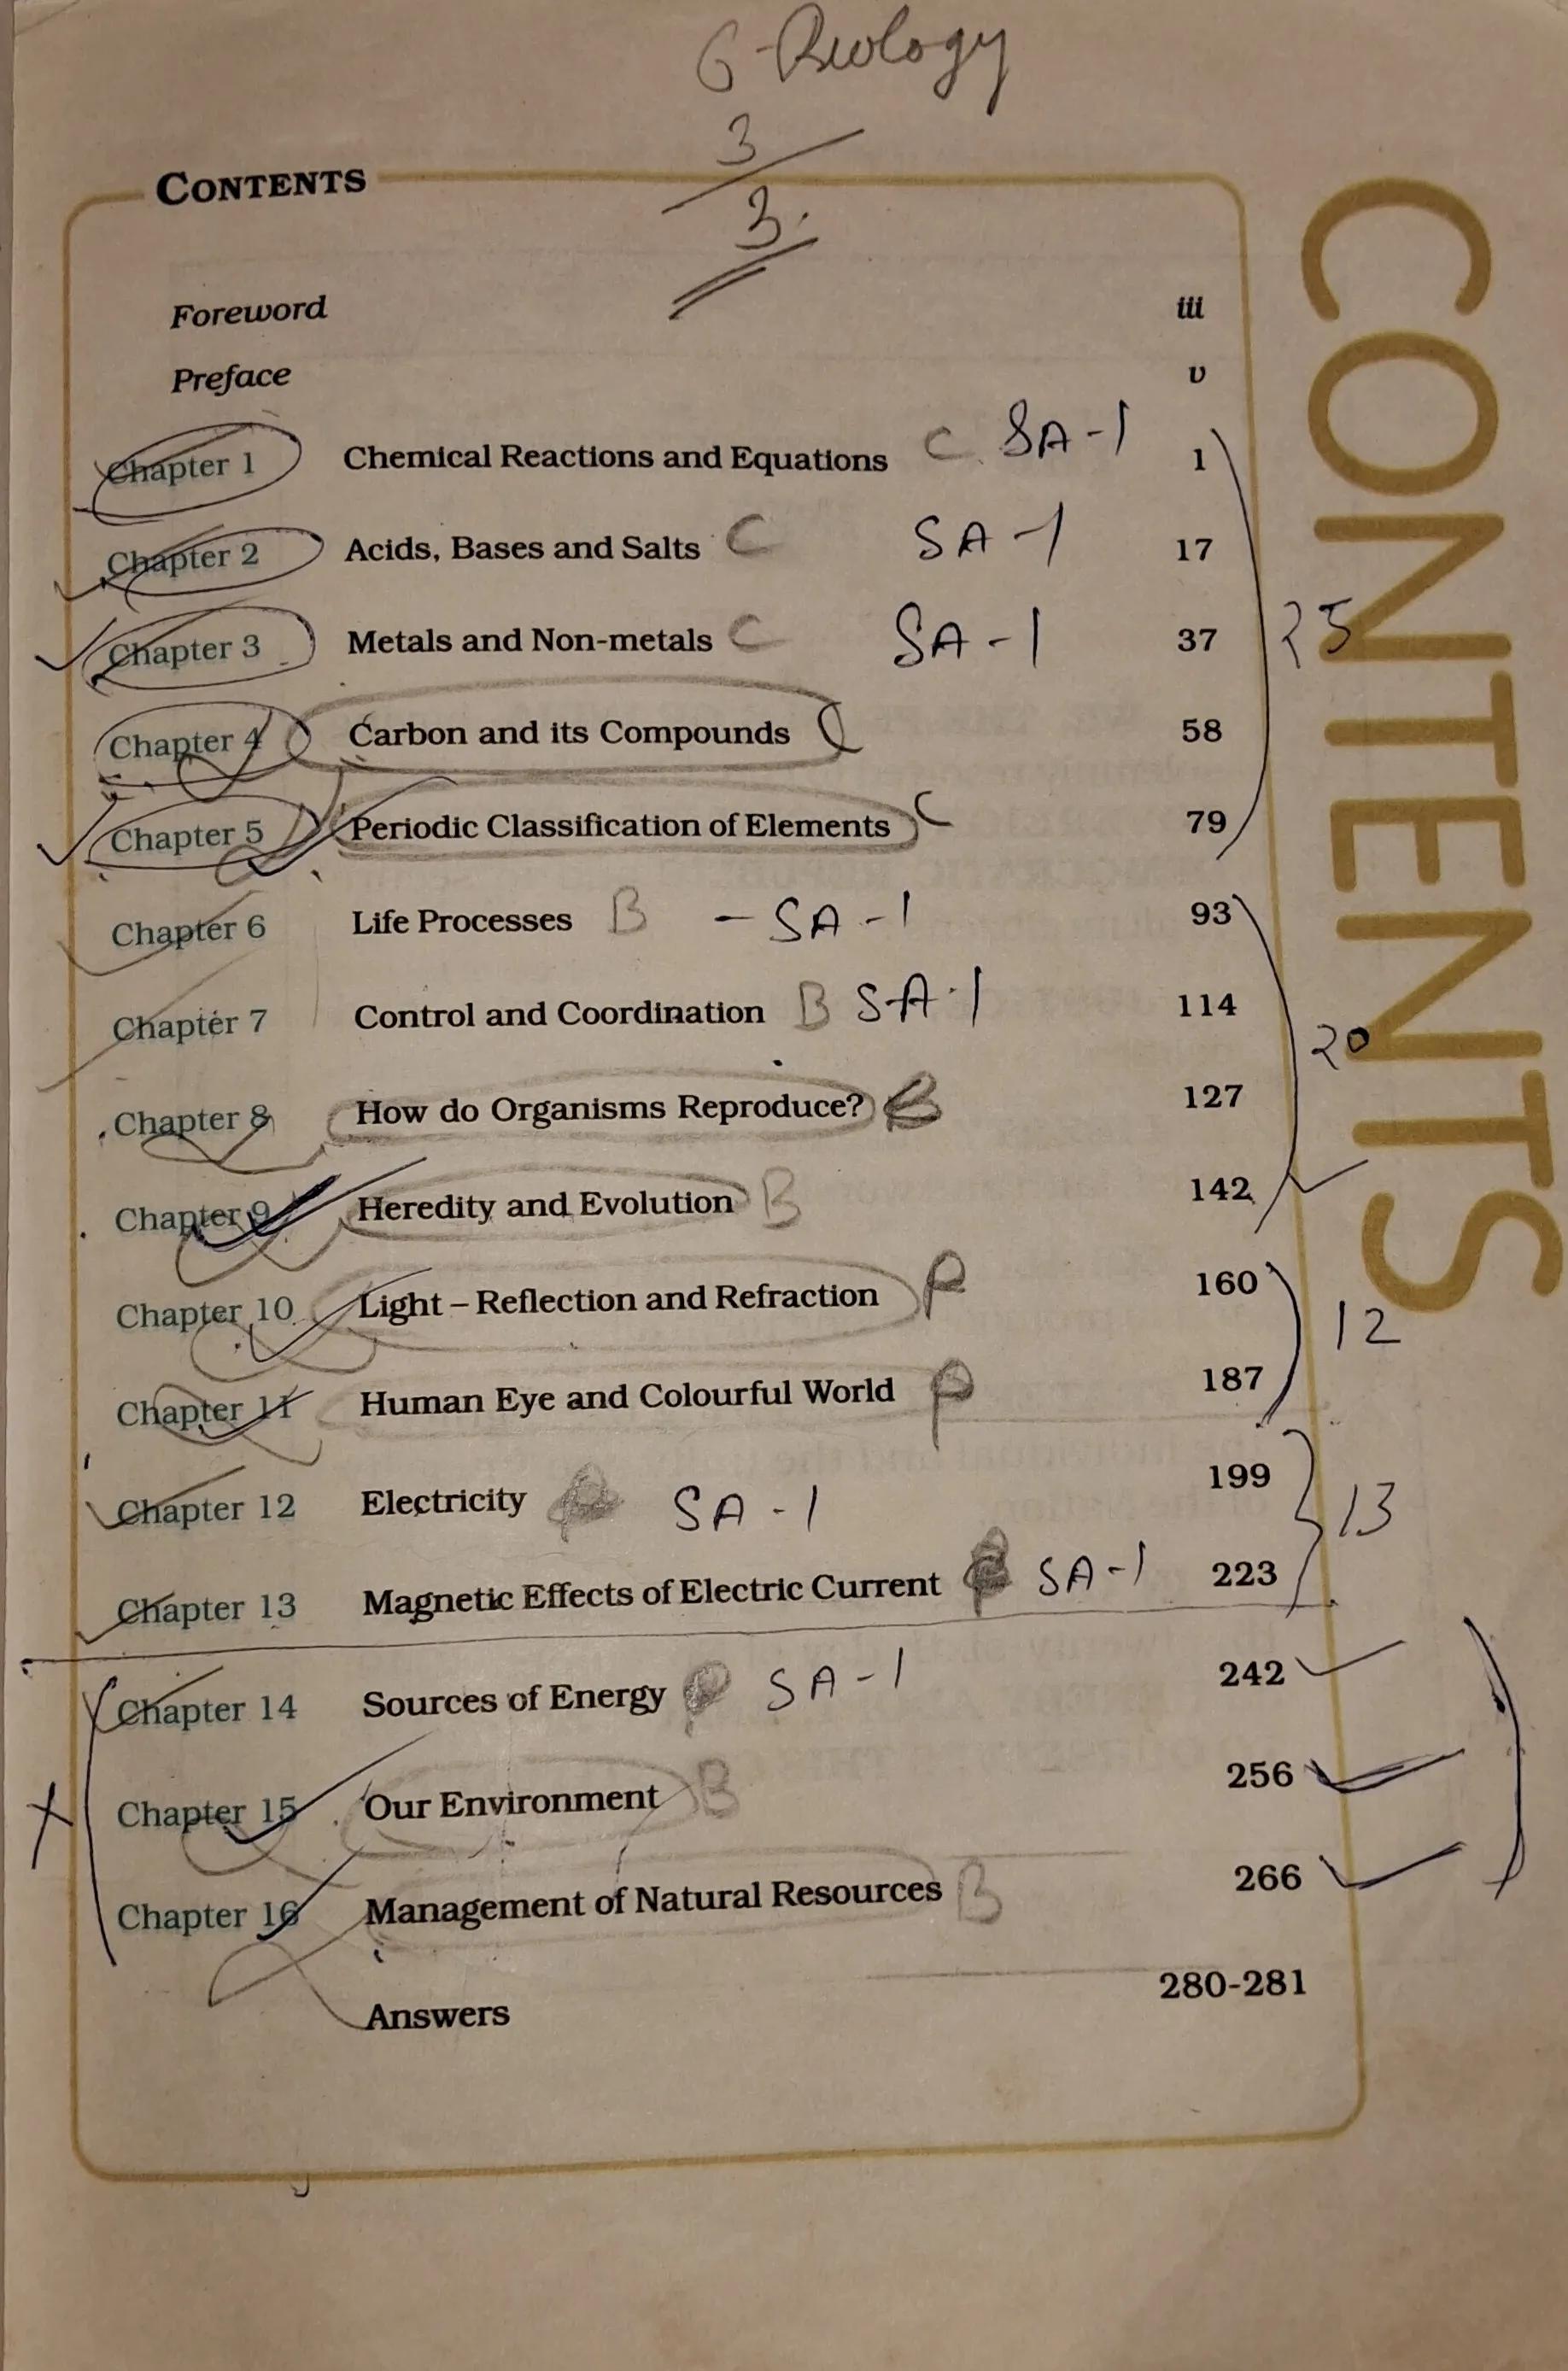 6-Biology
3
3.
CONTENTS
CONTENTS
Foreword iii
Preface v
Chapter 1 Chemical Reactions and Equations C SA-1 1
Chapter 2 Acids, Bases and Salts C SA-1 17
Chapter 3 Metals and Non-metals C SA-1 37
25
Chapter 4 Carbon and its Compounds C 58
Chapter 5 Periodic Classification of Elements C 79
Chapter 6 Life Processes B - SA-1 93
Chapter 7 Control and Coordination B SA-1 114
20
Chapter 8 How do Organisms Reproduce? B 127
Chapter 9 Heredity and Evolution B 142
Chapter 10 Light – Reflection and Refraction P 160
12
Chapter 11 Human Eye and Colourful World P 187
Chapter 12 Electricity P SA-1 199
13
Chapter 13 Magnetic Effects of Electric Current P SA-1 223
Chapter 14 Sources of Energy P SA-1 242
Chapter 15 Our Environment B 256
Chapter 16 Management of Natural Resources B 266
Answers 280-281